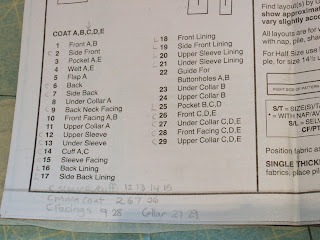 COAT A,B,C,D,E
1 Front A,B
C 2 Side Front
3 Pocket A,E
4 Welt A,E
5 Flap A
C 6 Back
C 7 Side Back
8 Under Collar A
C 9 Back Neck Facing
10 Front Facing A,B
11 Upper Collar A
C 12 Upper Sleeve
C 13 Under Sleeve
C 14 Cuff A,C
C 15 Sleeve Facing
L 16 Back Lining
L 17 Side Back Lining
L 18 Front Lining
L 19 Side Front Lining
L 20 Upper Sleeve Lining
L 21 Under Sleeve Lining
22 Guide For
Buttonholes A,B
23 Under Collar B
24 Upper Collar B
C 25 Pocket B,C,D
C 26 Front C,D,E
C 27 Under Collar C,D,E
C 28 Front Facing C,D,E
C 29 Upper Collar C,D,E
12 13 14 15
coat 2 6 7 26
Facings 9 28 Collar 27 29
Find layout(s) by
show approximat
vary slightly accor
All layouts are for v
with nap, pile, shad
For Half Size use
ple, for size 14½ u
S/T = SIZE(S)/T
* = WITH NAP/AV
S/L = SELV
CF/PT
Position fabric as
SINGLE THICKN
fabrics, place pil